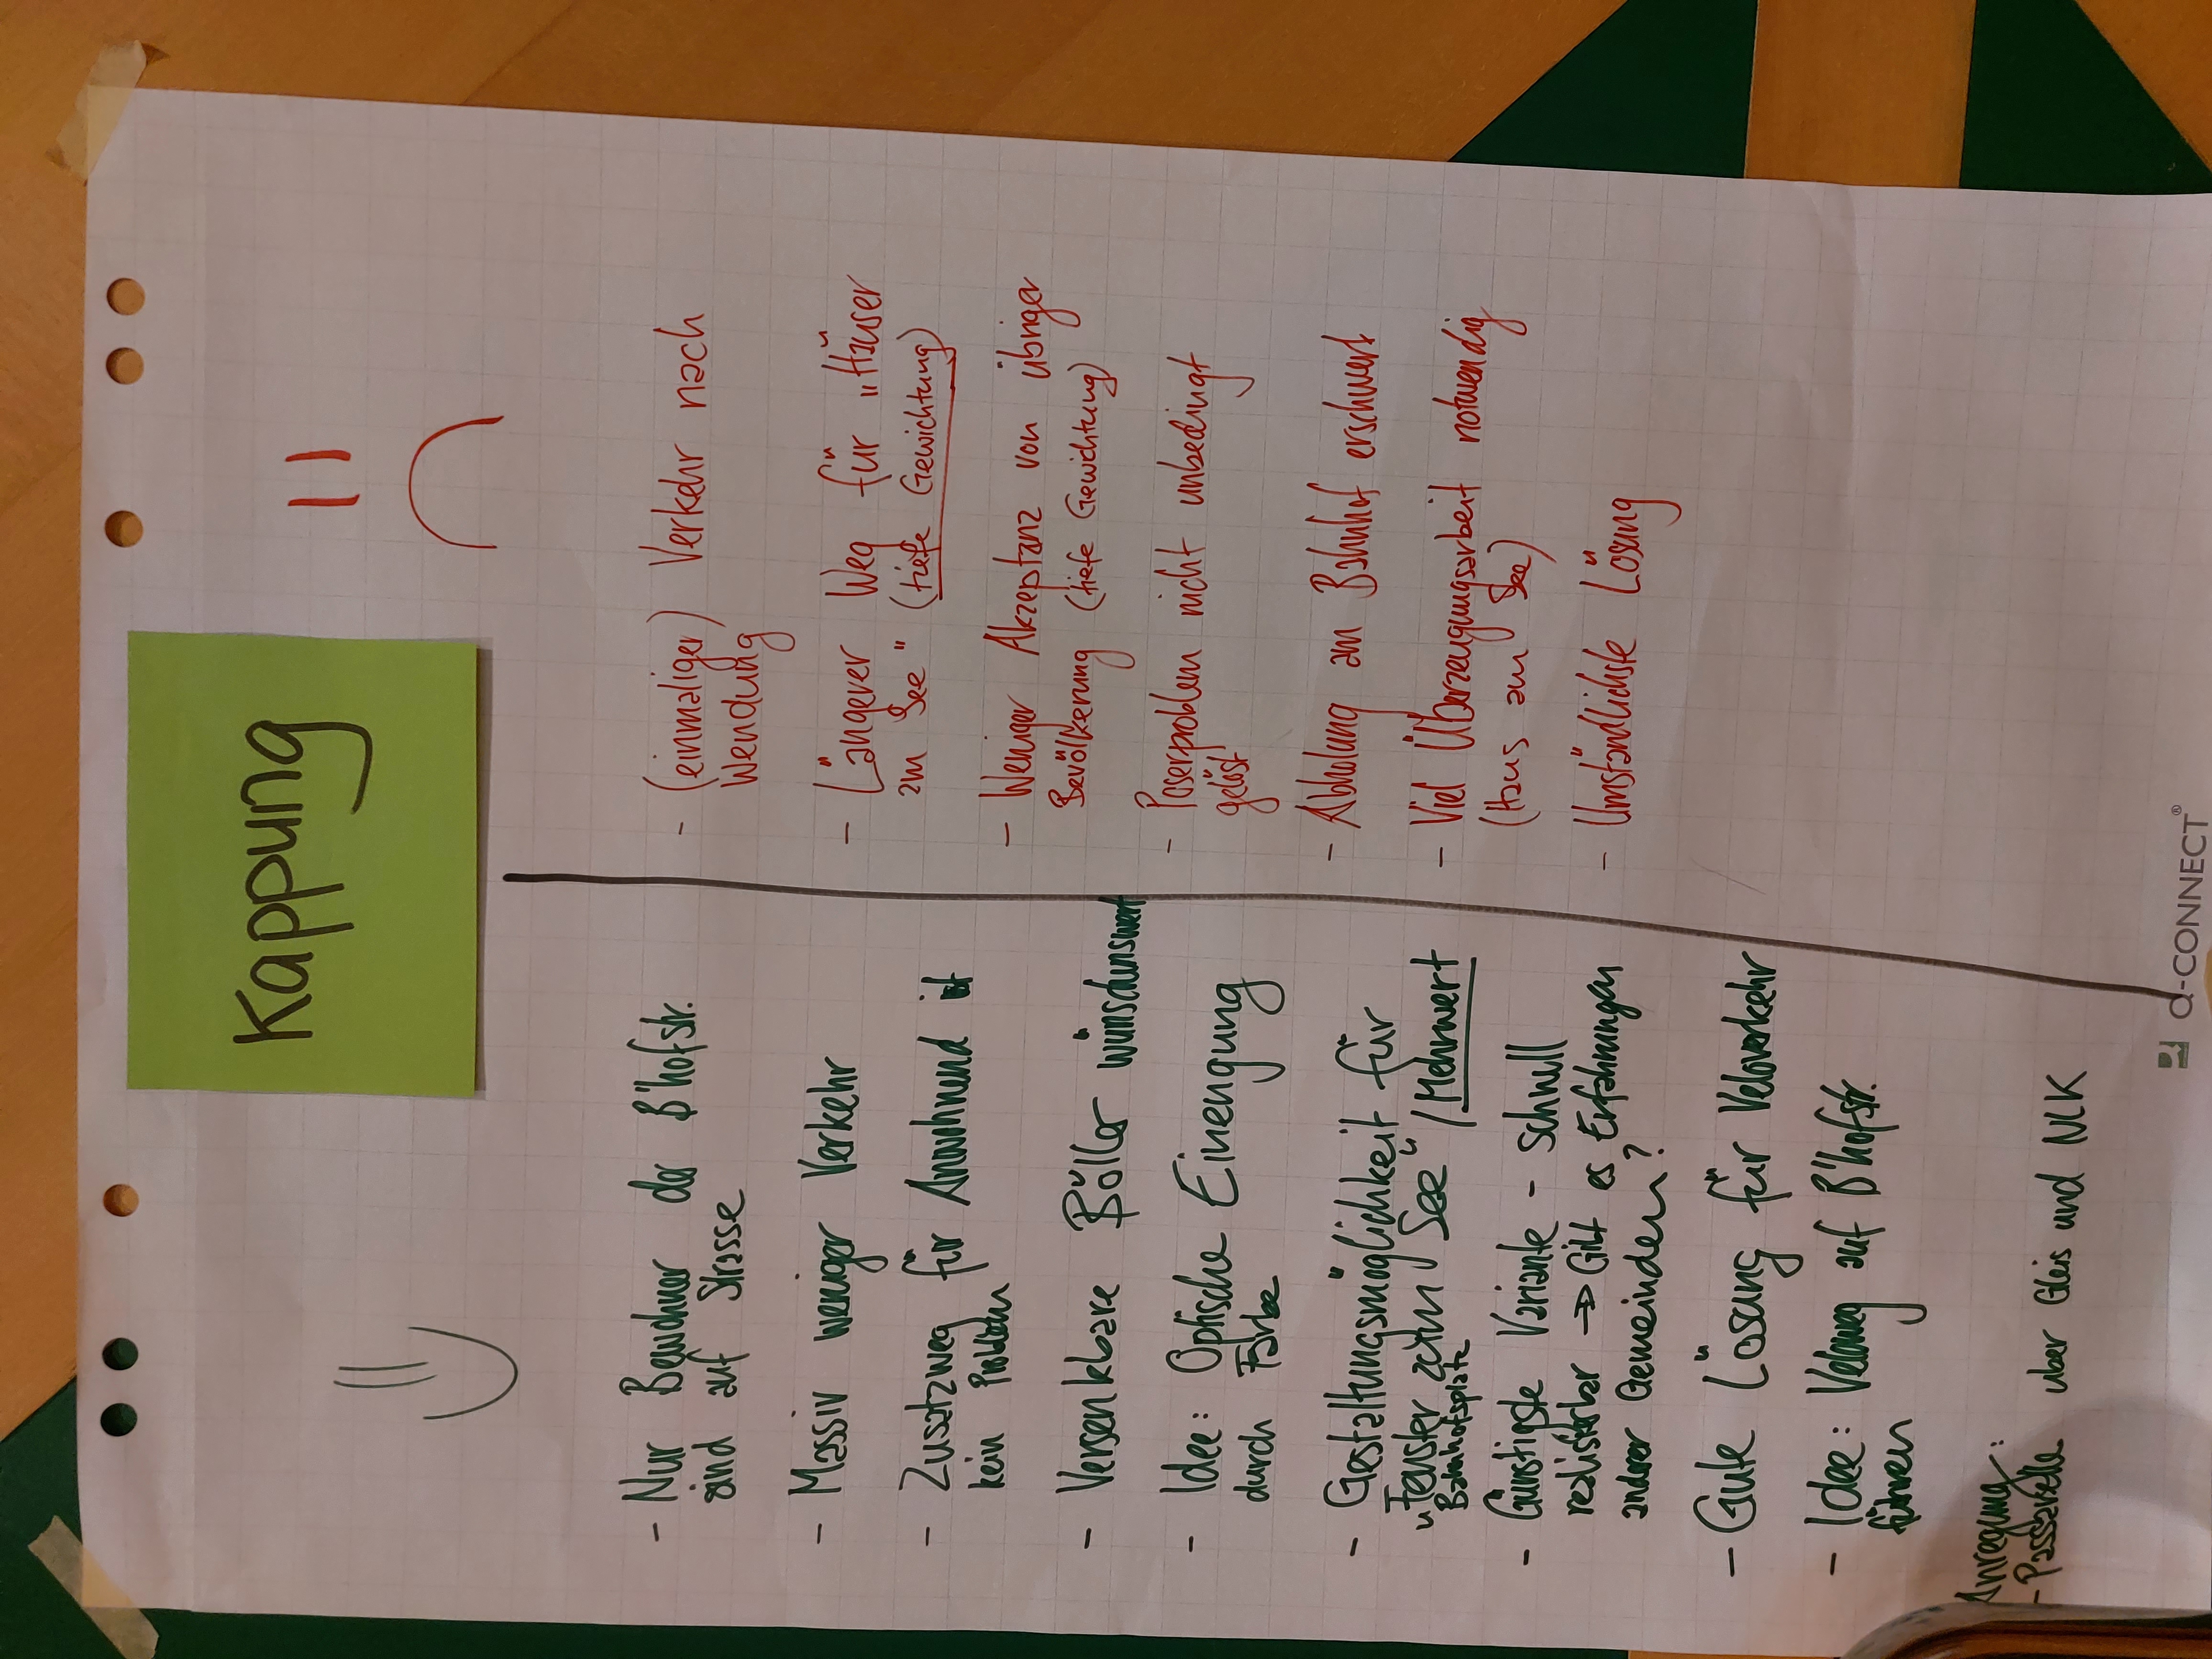 Kappung
- Nur Bewohner der B'hofstr.
sind auf Strasse
- Massiv weniger Verkehr
- Zusatzweg für Anwohnend ist
kein Problem
- Versenkbare Böller wünschenswert
- Idee: Optische Einengung
durch Farbe
- Gestaltungsmöglichkeit für
"Fenster zum See" / Mehrwert
Bahnhofsplatz
- Günstigste Variante - schnell
realisierbar → Gibt es Erfahrungen
anderer Gemeinden?
- Gute Lösung für Veloverkehr
- Idee: Veloweg auf B'hofstr.
führen
Anregung:
- Passarelle über Gleis und NLK
- (einmaliger) Verkehr nach
Wendung
- Längerer Weg für "Häuser
am See" (tiefe Gewichtung)
- Weniger Akzeptanz von übriger
Bevölkerung (tiefe Gewichtung)
- Poserproblem nicht unbedingt
gelöst
- Abholung am Bahnhof erschwert
- Viel Überzeugungsarbeit notwendig
(Haus am See)
- Umständlichste Lösung
α-CONNECT®